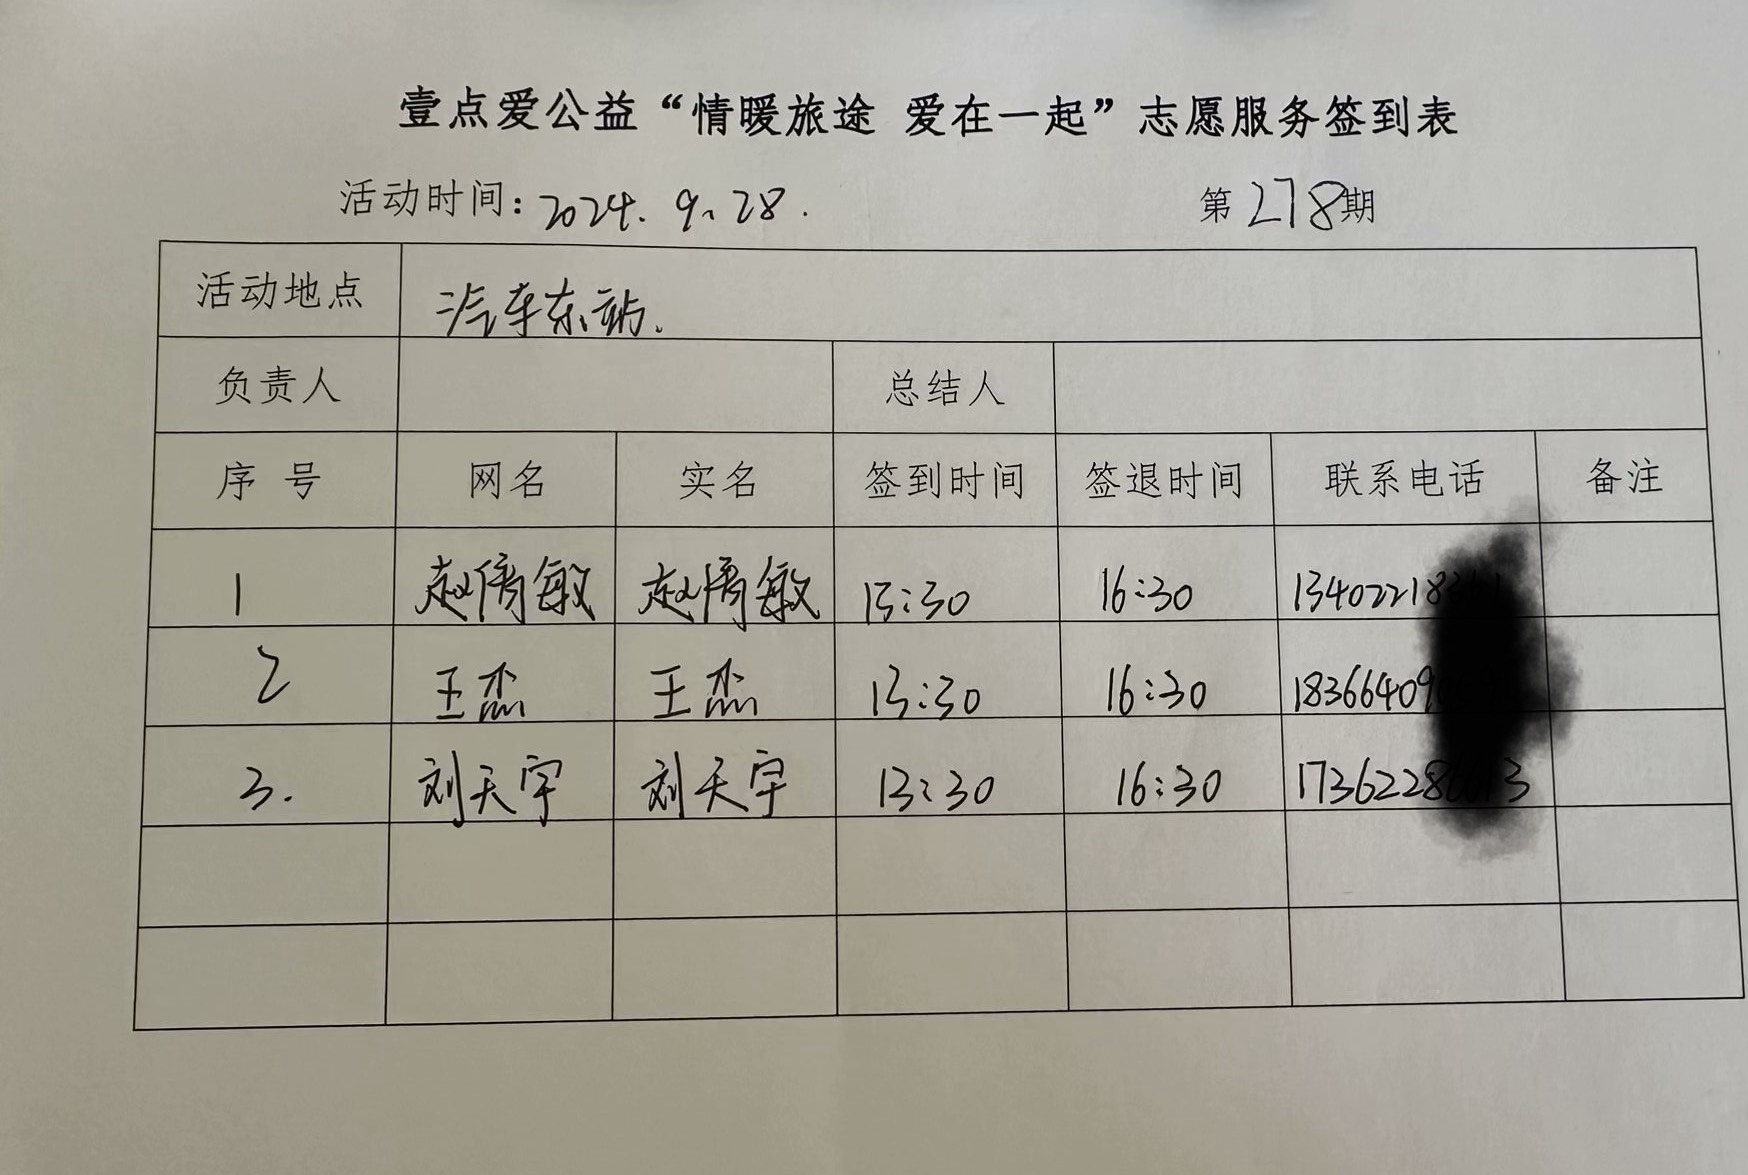 壹点爱公益“情暖旅途 爱在一起”志愿服务签到表
活动时间：2024.9.28. 第278期
活动地点 汽车东站.
负责人 总结人
序号 网名 实名 签到时间 签退时间 联系电话 备注
1 赵倩敏 赵倩敏 13:30 16:30
2 王杰 王杰 13:30 16:30
3. 刘天宇 刘天宇 13:30 16:30